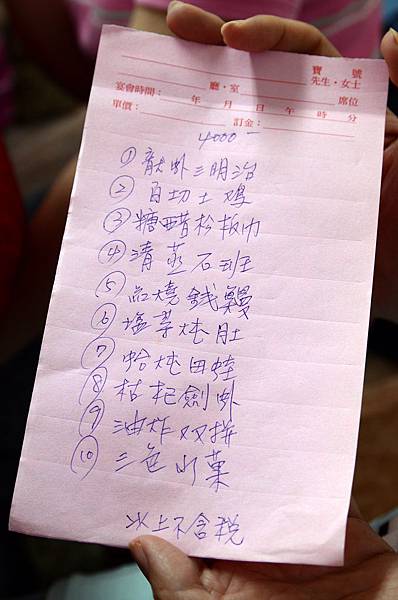 寶號
廳・室 先生・女士
宴會時間： 年 月 日 午 時 分 席位
單價： 訂金：
4000-
① 龍虾三明治
② 白切土鸡
③ 糖醋松板巾
④ 清蒸石班
⑤ 紅燒鋐鰻
⑥ 炖肚
⑦ 蛤炖田蛙
⑧ 枯杞劍虾
⑨ 油炸双拼
⑩ 三色山菓
以上不含税